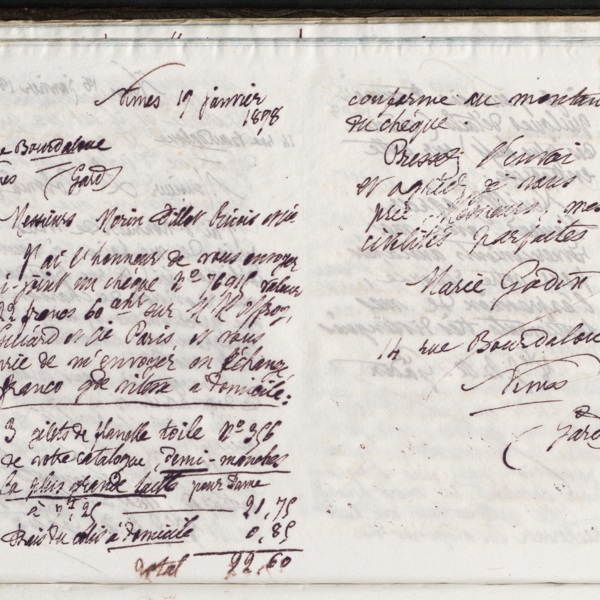 Nîmes 19 janvier
1898
Bourdaloue
(Gard)
Messieurs Morin
J'ai l'honneur de vous envoyer
ci-joint un chèque No 76915 valeur
22 francs 60 cmes sur MM
et Cie Paris, et vous
prie de m'envoyer en échange
franco gde vitesse à domicile :
3 gilets de flanelle toile No 356
de votre catalogue, demi-manches
la plus grande taille pour Dame
à 7f,25 21,75
Frais du colis à domicile 0,85
Total 22,60
conforme au montan
du chèque.
Pressez l'envoi
et agréez je vous
prie Messieurs, mes
civilités parfaites
Marie Godin
14 rue Bourdalou
Nîmes
(Gard